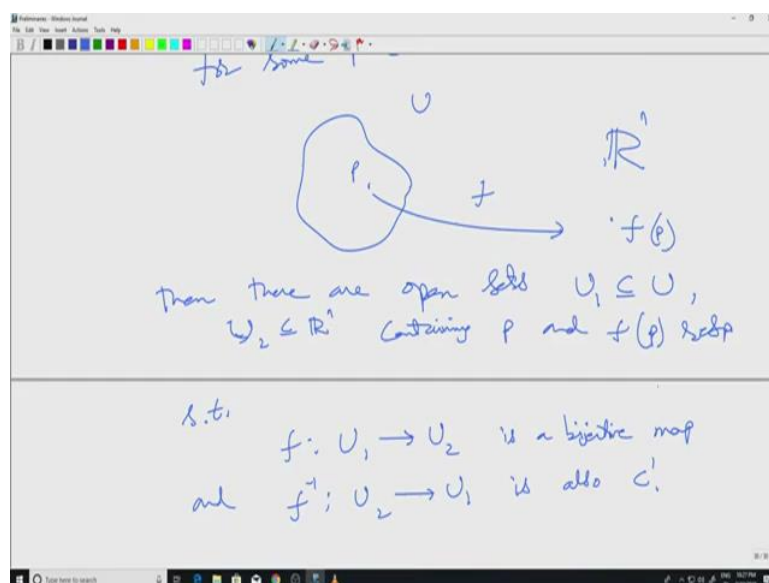 Preliminaries - Windows Journal
File Edit View Insert Actions Tools Help
for some
U
P.
f
ℝⁿ
f(p)
Then there are open sets U₁ ⊆ U,
U₂ ⊆ ℝⁿ containing p and f(p) resp
s.t.
f: U₁ → U₂ is a bijective map
and f⁻¹: U₂ → U₁ is also C¹.
Type here to search